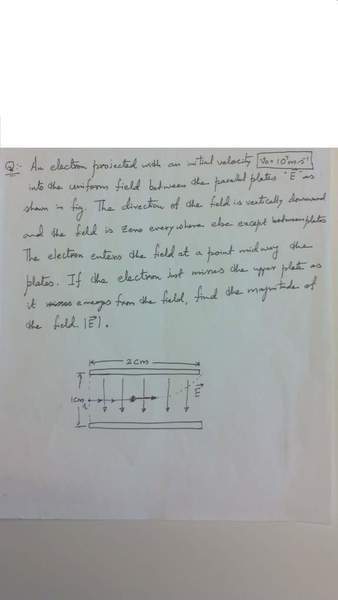 Q:- An electron projected with an initial velocity v₀ = 10⁷ m·s⁻¹
into the uniform field between the parallel plates "E" as
shown in fig. The direction of the field is vertically downward
and the field is zero everywhere else except between plates
The electron enters the field at a point midway the
plates. If the electron just misses the upper plate as
it emerges from the field, find the magnitude of
the field |E⃗|.
2cm
1cm
E⃗